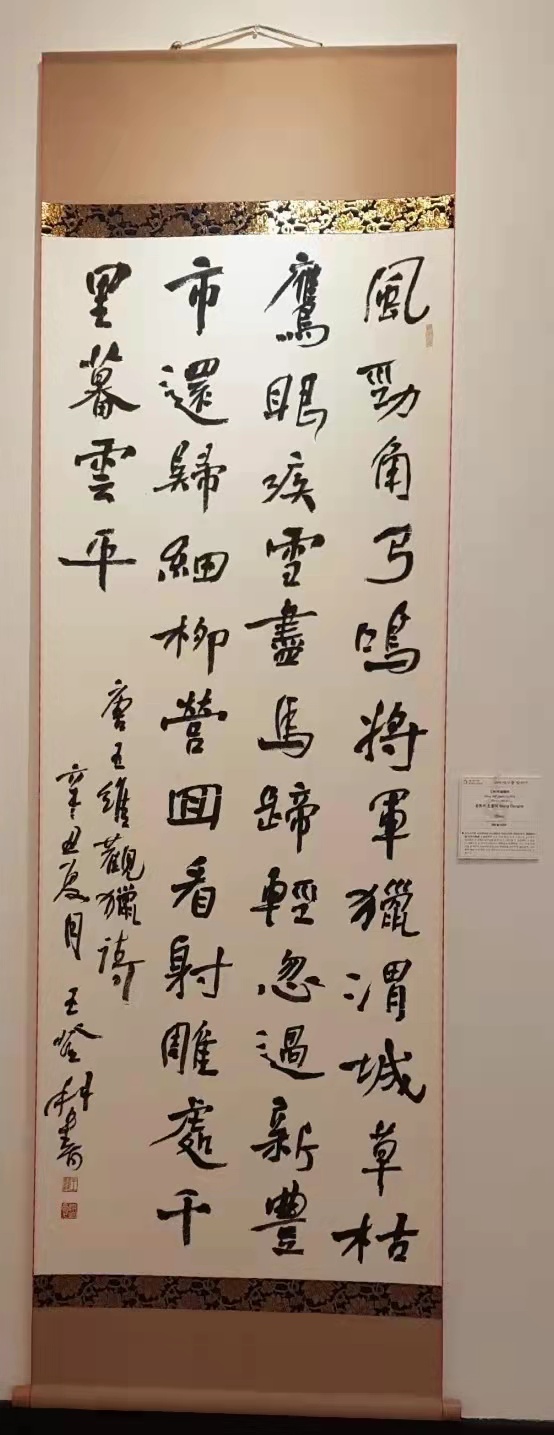 風勁角弓鳴將軍獵渭城草枯
鷹眼疾雪盡馬蹄輕忽過新豐
市還歸細柳營回看射雕處千
里暮雲平
唐王維觀獵詩
辛丑夏月 王登科書